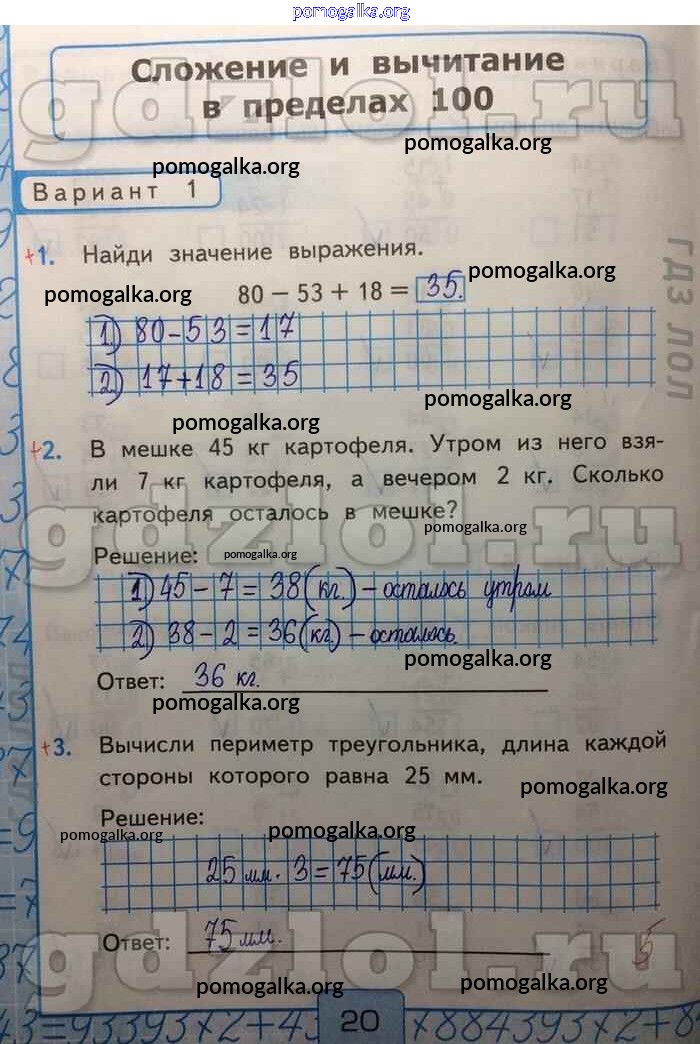 pomogalka.org
Сложение и вычитание
в пределах 100
gdzlol.ru
pomogalka.org
pomogalka.org
Вариант 1
+1. Найди значение выражения.
pomogalka.org
pomogalka.org
80 – 53 + 18 = 35.
1) 80-53=17
2) 17+18=35
гдз лол
pomogalka.org
pomogalka.org
+2. В мешке 45 кг картофеля. Утром из него взя-
ли 7 кг картофеля, а вечером 2 кг. Сколько
картофеля осталось в мешке?
pomogalka.org
gdzlol.ru
Решение:
pomogalka.org
1) 45-7=38(кг.)-осталось утром
2) 38-2=36(кг.)-осталось.
pomogalka.org
Ответ: 36 кг.
pomogalka.org
+3. Вычисли периметр треугольника, длина каждой
стороны которого равна 25 мм.
pomogalka.org
Решение:
pomogalka.org
pomogalka.org
25мм·3=75(мм.)
Ответ: 75мм.
5
gdzlol.ru
pomogalka.org
pomogalka.org
43=93393x2+43
20
x884393x2+8